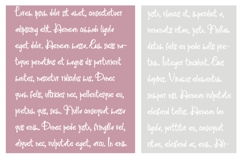 Lorem ipsum dolor sit amet, consectetuer
adipiscing elit. Aenean commodo ligula
eget dolor. Aenean massa. Cum sociis na-
toque penatibus et magnis dis parturient
montes, nascetur ridiculus mus. Donec
quam felis, ultricies nec, pellentesque eu,
pretium quis, sem. Nulla consequat massa
quis enim. Donec pede justo, fringilla vel,
aliquet nec, vulputate eget, arcu. In enim
justo, rhoncus ut, imperdiet a,
venenatis vitae, justo. Nullam
dictum felis eu pede mollis pre-
tium. Integer tincidunt. Cras
dapibus. Vivamus elementum
semper nisi. Aenean vulputate
eleifend tellus. Aenean leo
ligula, porttitor eu, consequat
vitae, eleifend ac, enim.